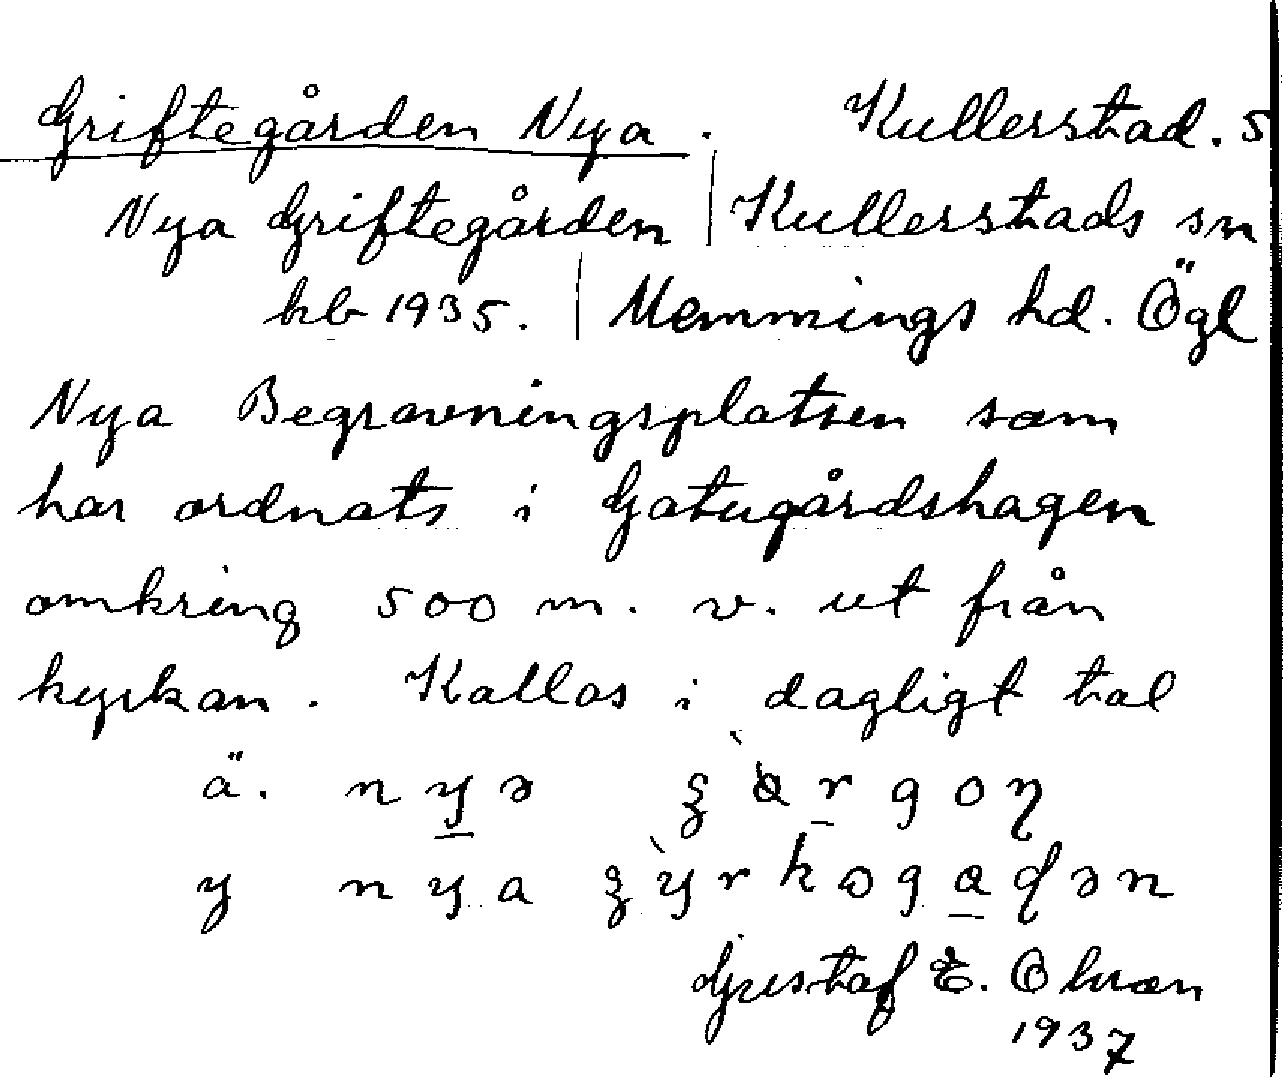 Griftegården Nya. Kullerstad. 5
Nya Griftegården | Kullerstads sn
kb 1935. | Memmings hd. Ögl
Nya Begravningsplatsen som
har ordnats i Gatugårdshagen
omkring 500 m. v. ut från
kyrkan. Kallas i dagligt tal
ä. nyə
y nya
Gustaf E. Olsson
1937